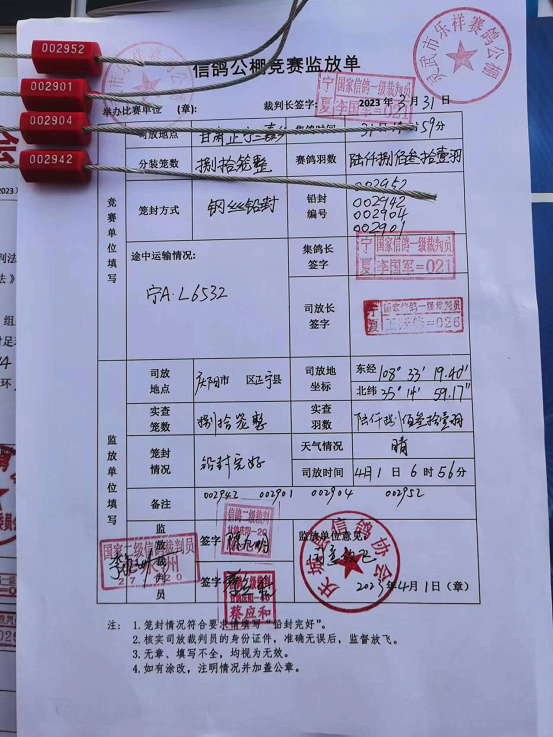 002952
002901
002904
002942
信鸽公棚竞赛监放单
庆阳市乐祥赛鸽公棚
举办比赛单位 (章):
裁判长签字:
宁夏
国家信鸽一级裁判员
李国军=021
2023年3月31日
竞赛单位填写
司放地点
甘肃正宁
集鸽时间
59分
分装笼数
捌拾笼整
赛鸽羽数
陆仟捌佰叁拾壹羽
笼封方式
钢丝铅封
铅封编号
002952
002942
002904
002901
途中运输情况:
宁A·L6532
集鸽长签字
宁夏
国家信鸽一级裁判员
李国军=021
司放长签字
宁夏
国家信鸽一级裁判员
=026
监放单位填写
司放地点
庆阳市 区正宁县
司放地坐标
东经 108° 33′ 19.40″
北纬 35° 14′ 59.17″
实查笼数
捌拾笼整
实查羽数
陆仟捌佰叁拾壹羽
笼封情况
铅封完好
天气情况
晴
司放时间
4月1日6时56分
备注
002942 002901 002904 002952
监放裁判员
国家二级裁判员
签字
信鸽二级裁判
签字
蔡应和
监放单位意见:
庆城县信鸽协会
2023年4月1日(章)
注: 1.笼封情况符合要求请填写“铅封完好”。
2.核实司放裁判员的身份证件,准确无误后,监督放飞。
3.无章、填写不全,均视为无效。
4.如有涂改,注明情况并加盖公章。